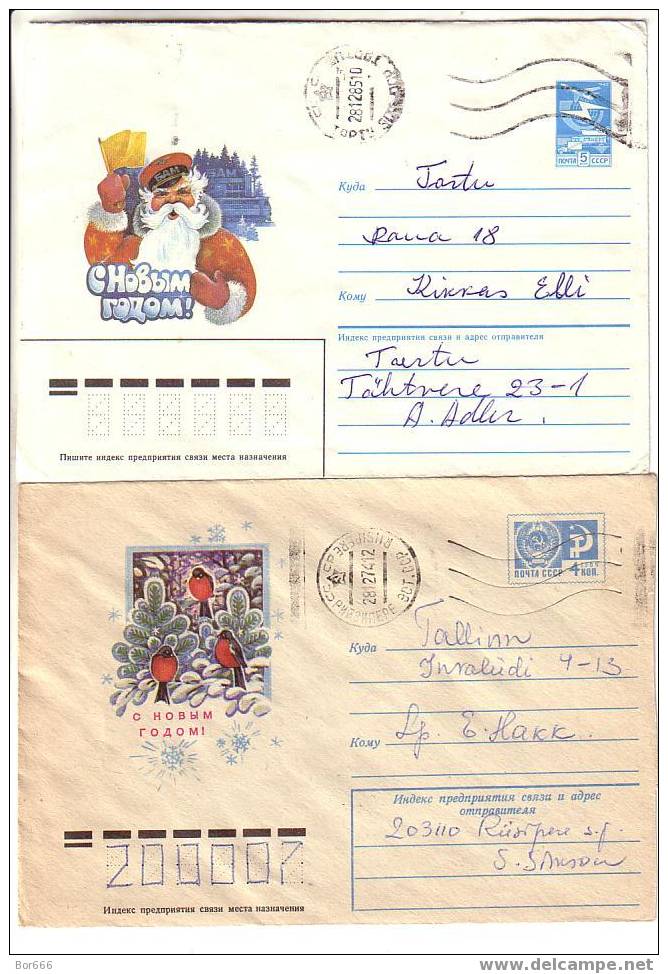 28128510
ПОЧТА 5 СССР
БАМ
БАМ
С НОВЫМ
ГОДОМ!
Куда Tartu
Rana 18
Кому Kikkas Elli
Индекс предприятия связи и адрес отправителя
Tartu
Tähtvere 23-1
A. Adler
Пишите индекс предприятия связи места назначения
RIISIPERE
ЭСТ. ССР
ПОЧТА СССР 4 КОП.
С НОВЫМ
ГОДОМ!
Куда Tallinn
Invaliidi 4-13
Кому Lp. E. Hakk.
Индекс предприятия связи и адрес
отправителя
203110 Riisipere s.j.
200007
Индекс предприятия связи места назначения
Bor666
DELCAMPE.NET